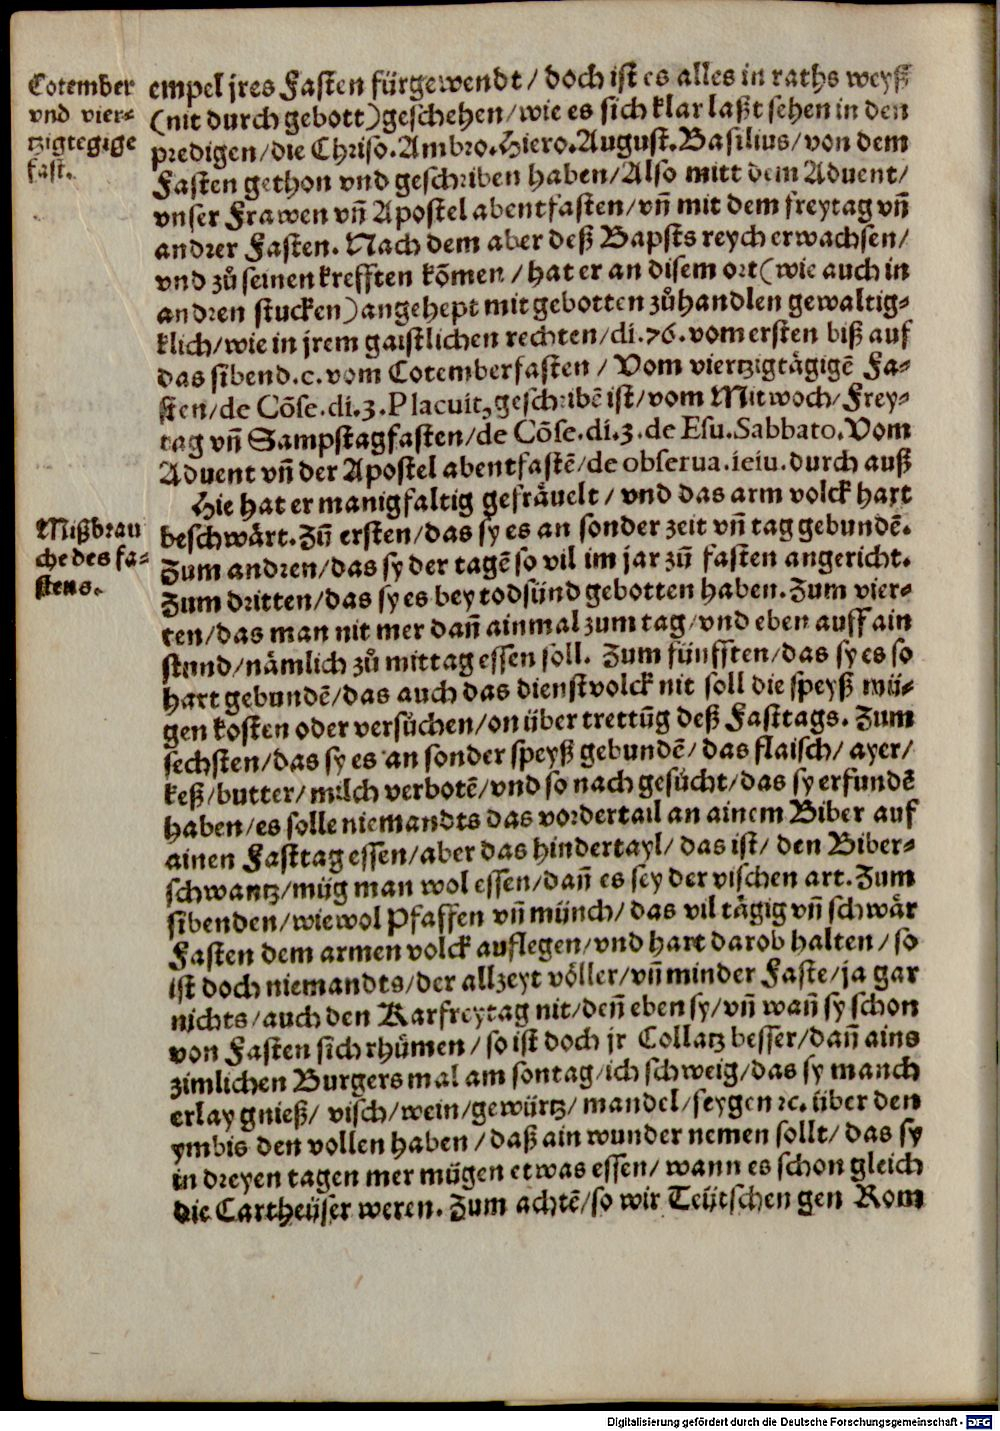 Cotember
vnd vier-
tzigtegige
fast.
empel jres Fasten fürgewendt / doch ist es alles in raths weyß
(nit durch gebott) geschehen / wie es sich klar laßt sehen in den
predigen / die Chriso. Ambro. Hiero. August. Basilius / von dem
Fasten gethon vnd geschriben haben / Also mitt dem Aduent /
vnser Frawen vñ Apostel abentfasten / vñ mit dem freytag vñ
andrer Fasten. Nach dem aber deß Bapsts reych erwachsen /
vnd zů seinen krefften kõmen / hat er an disem ort (wie auch in
andren stucken) angehept mit gebotten zů handlen gewaltig-
klich / wie in jrem gaistlichen rechten / di. 76. vom ersten biß auf
das sibend. c. vom Cotemberfasten / Vom viertzigtägigẽ Fa-
sten / de Cõse. di. 3. Placuit, geschribẽ ist / vom Mitwoch / Frey-
tag vñ Sampstagfasten / de Cõse. di. 3. de Esu. Sabbato. Vom
Aduent vñ der Apostel abentfastẽ / de obserua. ieiu. durch auß
Hie hat er manigfaltig gefräuelt / vnd das arm volck hart
Mißbrau
che des fa-
stens.
beschwärt. Zũ ersten / das sy es an sonder zeit vñ tag gebundẽ.
Zum andren / das sy der tagẽ so vil im jar zũ fasten angericht.
Zum dritten / das sy es bey todsünd gebotten haben. Zum vier-
ten / das man nit mer dañ ainmal zum tag / vnd eben auff ain
stund / nämlich zů mittag essen soll. Zum fünfften / das sy es so
hart gebundẽ / das auch das dienstvolck nit soll die speyß mü-
gen kosten oder versüchen / on über trettũg deß Fasttags. Zum
sechsten / das sy es an sonder speyß gebundẽ / das flaisch / ayer /
keß / butter / milch verbotẽ / vnd so nach gesücht / das sy erfundẽ
haben / es solle niemandts das vordertail an ainem Biber auf
ainen Fasttag essen / aber das hindertayl / das ist / den Biber-
schwantz / müg man wol essen / dañ es sey der vischen art. Zum
sibenden / wiewol Pfaffen vñ münch / das vil tägig vñ schwär
Fasten dem armen volck auflegen / vnd hart darob halten / so
ist doch niemandts / der allzeyt völler / vñ minder Faste / ja gar
nichts / auch den Karfreytag nit / deñ eben sy / vñ wañ sy schon
von Fasten sich rhümen / so ist doch jr Collatz besser / dañ ains
zimlichen Burgers mal am sontag / ich schweig / das sy manch
erlay gnieß / visch / wein / gewürtz / mandel / feygen ꝛc. über den
ymbis den vollen haben / daß ain wunder nemen sollt / das sy
in dreyen tagen mer mügen etwas essen / wann es schon gleich
die Cartheüser weren. Zum achtẽ / so wir Teütschen gen Rom
Digitalisierung gefördert durch die Deutsche Forschungsgemeinschaft - DFG